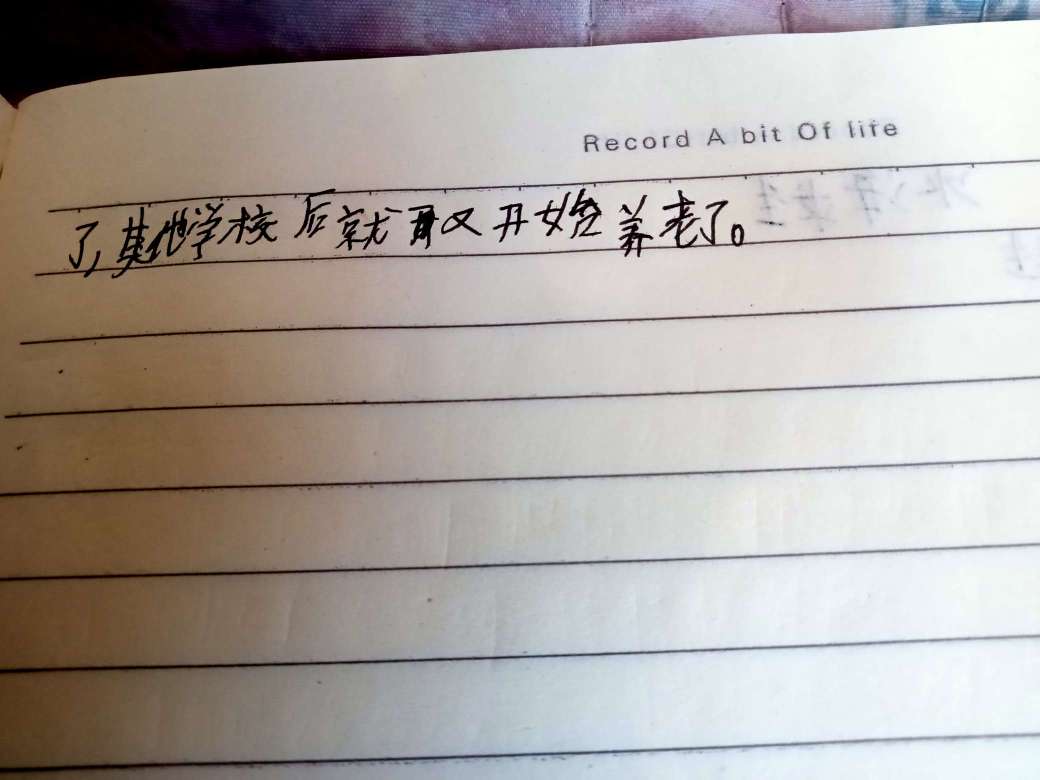 Record A bit Of life
了,其他学校后就又开始养老了。